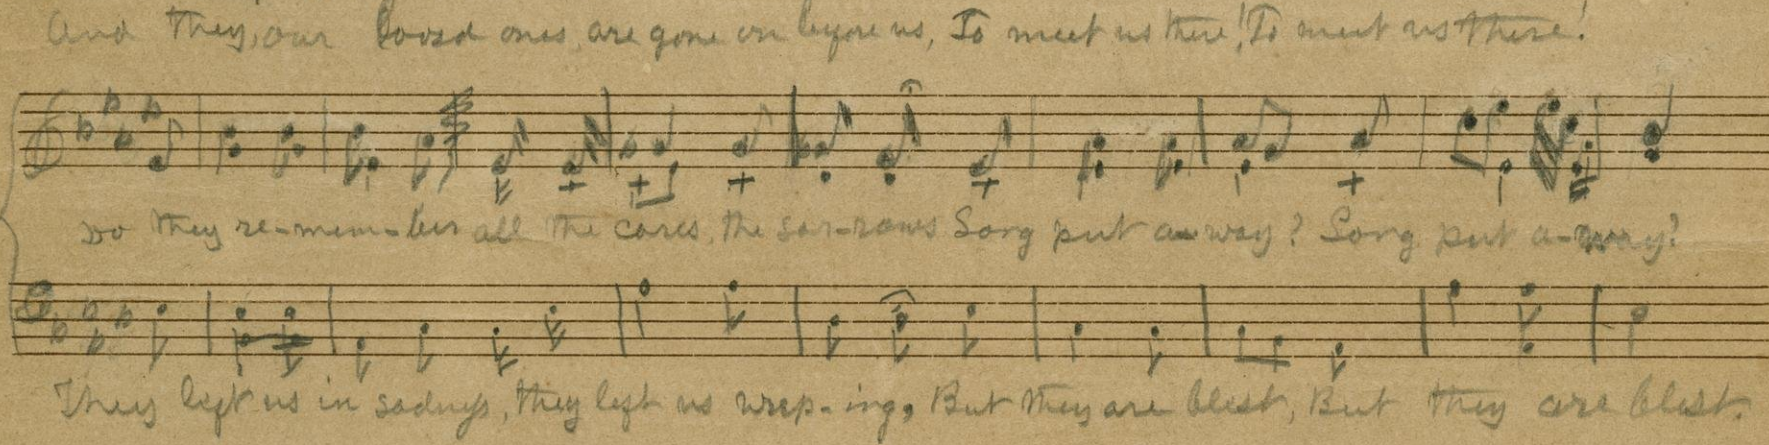 And they, our loved ones are gone on before us, To meet us there! To meet us there!
Do they re-mem-ber all the cares, the sor-rows Song put a-way? Song put a-way?
They left us in sadness, they left us weep-ing, But they are blest, But they are blest.